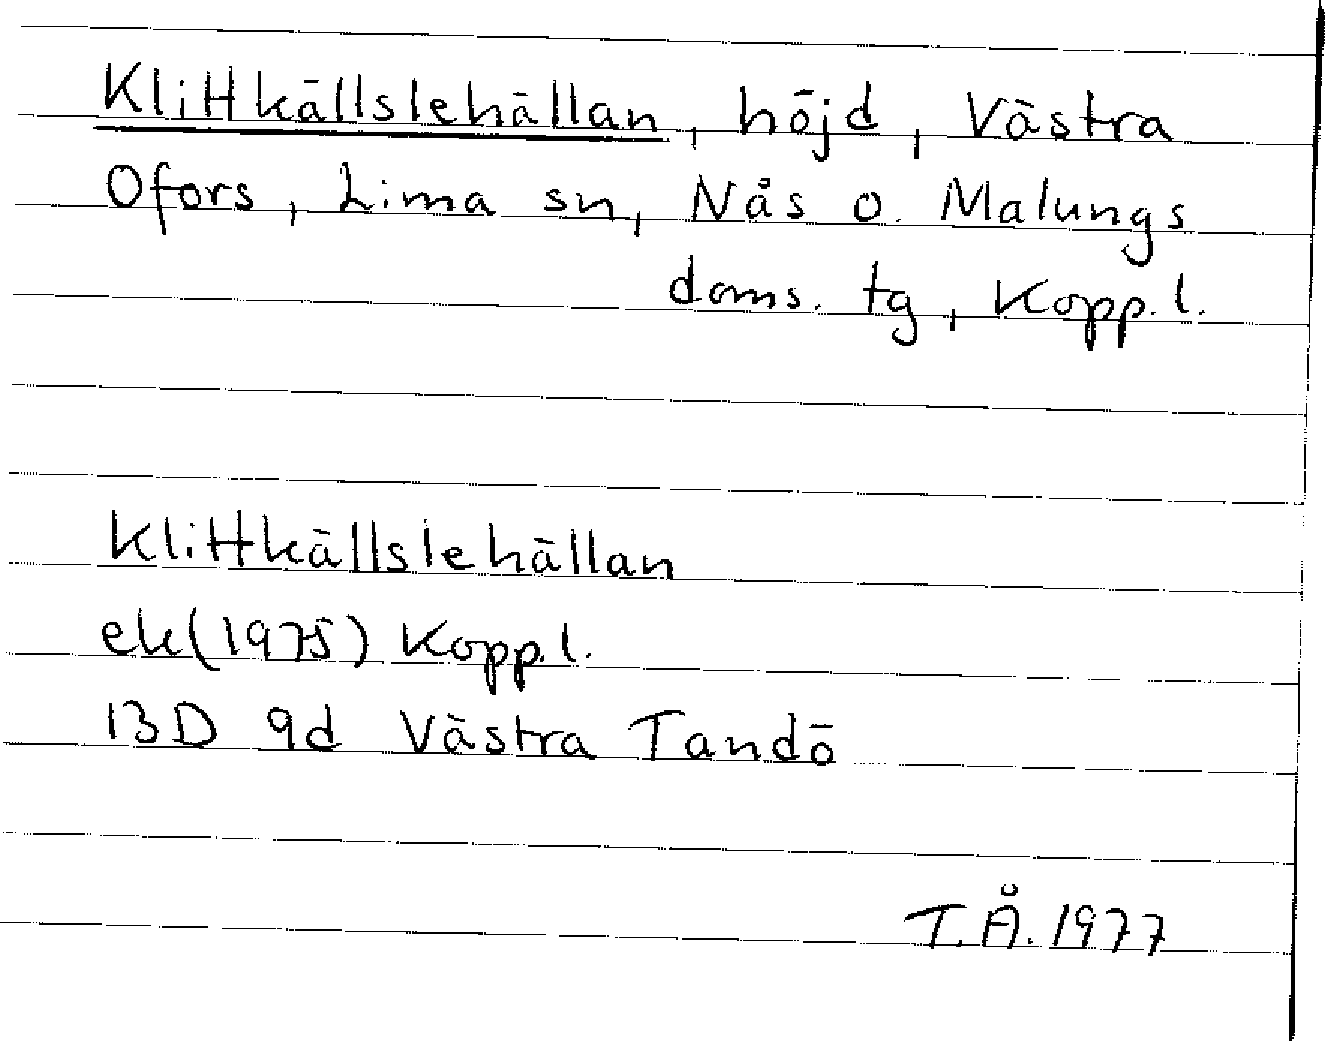 Klittkällslehällan, höjd, Västra
Ofors, Lima sn, Nås o. Malungs
doms. tg, Kopp. l.
Klittkällslehällan
ek(1975) Kopp. l.
13D 9d Västra Tandö
T.Å. 1977